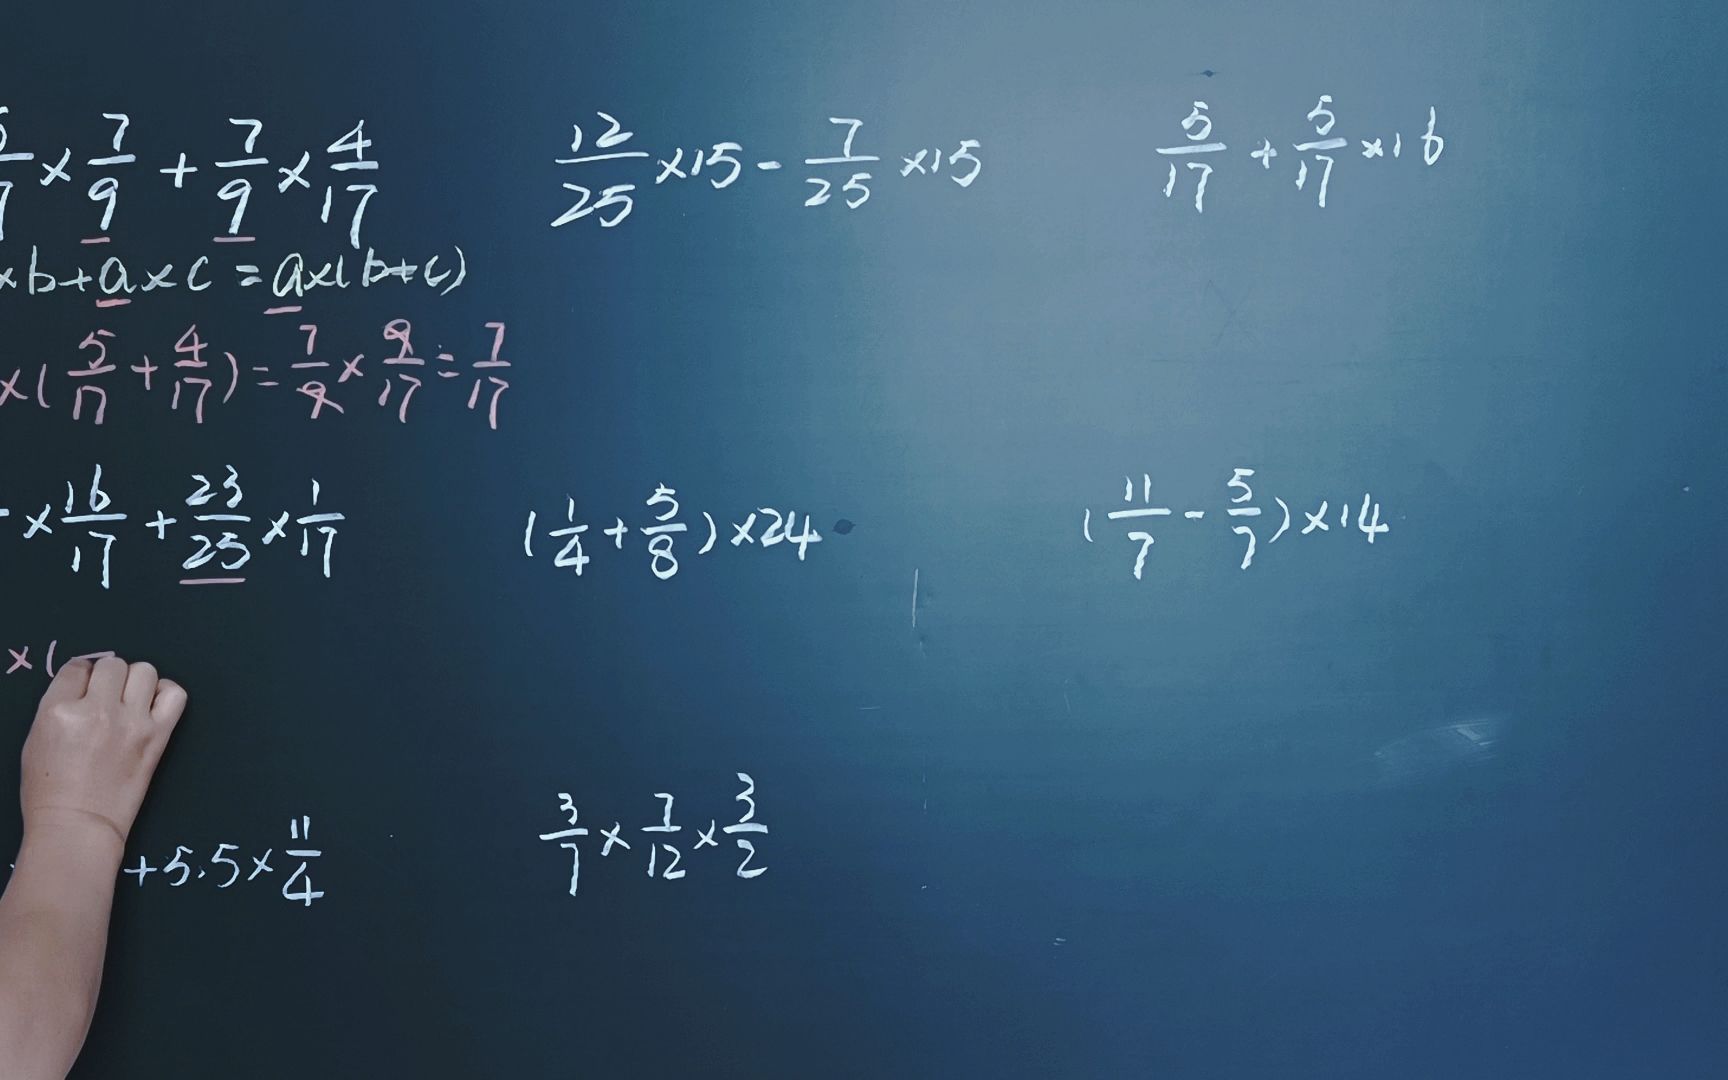 × 7/9 + 7/9 × 4/17
12/25 ×15 - 7/25 ×15
5/17 + 5/17 ×16
×b+a×c = a×(b+c)
×( 5/17 + 4/17 ) = 7/9 × 9/17 = 7/17
× 16/17 + 23/25 × 1/17
( 1/4 + 5/8 ) ×24
( 11/7 - 5/7 ) ×14
×(
+5.5× 11/4
3/7 × 7/12 × 3/2